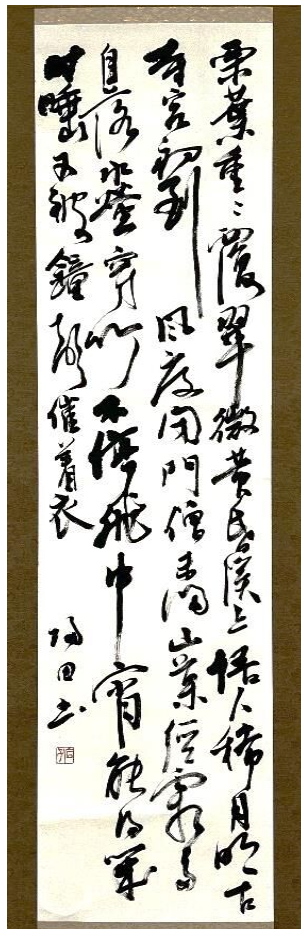 栗葉重〻覆翠微黄昏溪上語人稀月明古
寺客初到風度閑門僧未歸山菓經霜多
自落水螢穿竹不停飛中宵能得幾
時睡又被鐘聲催着衣